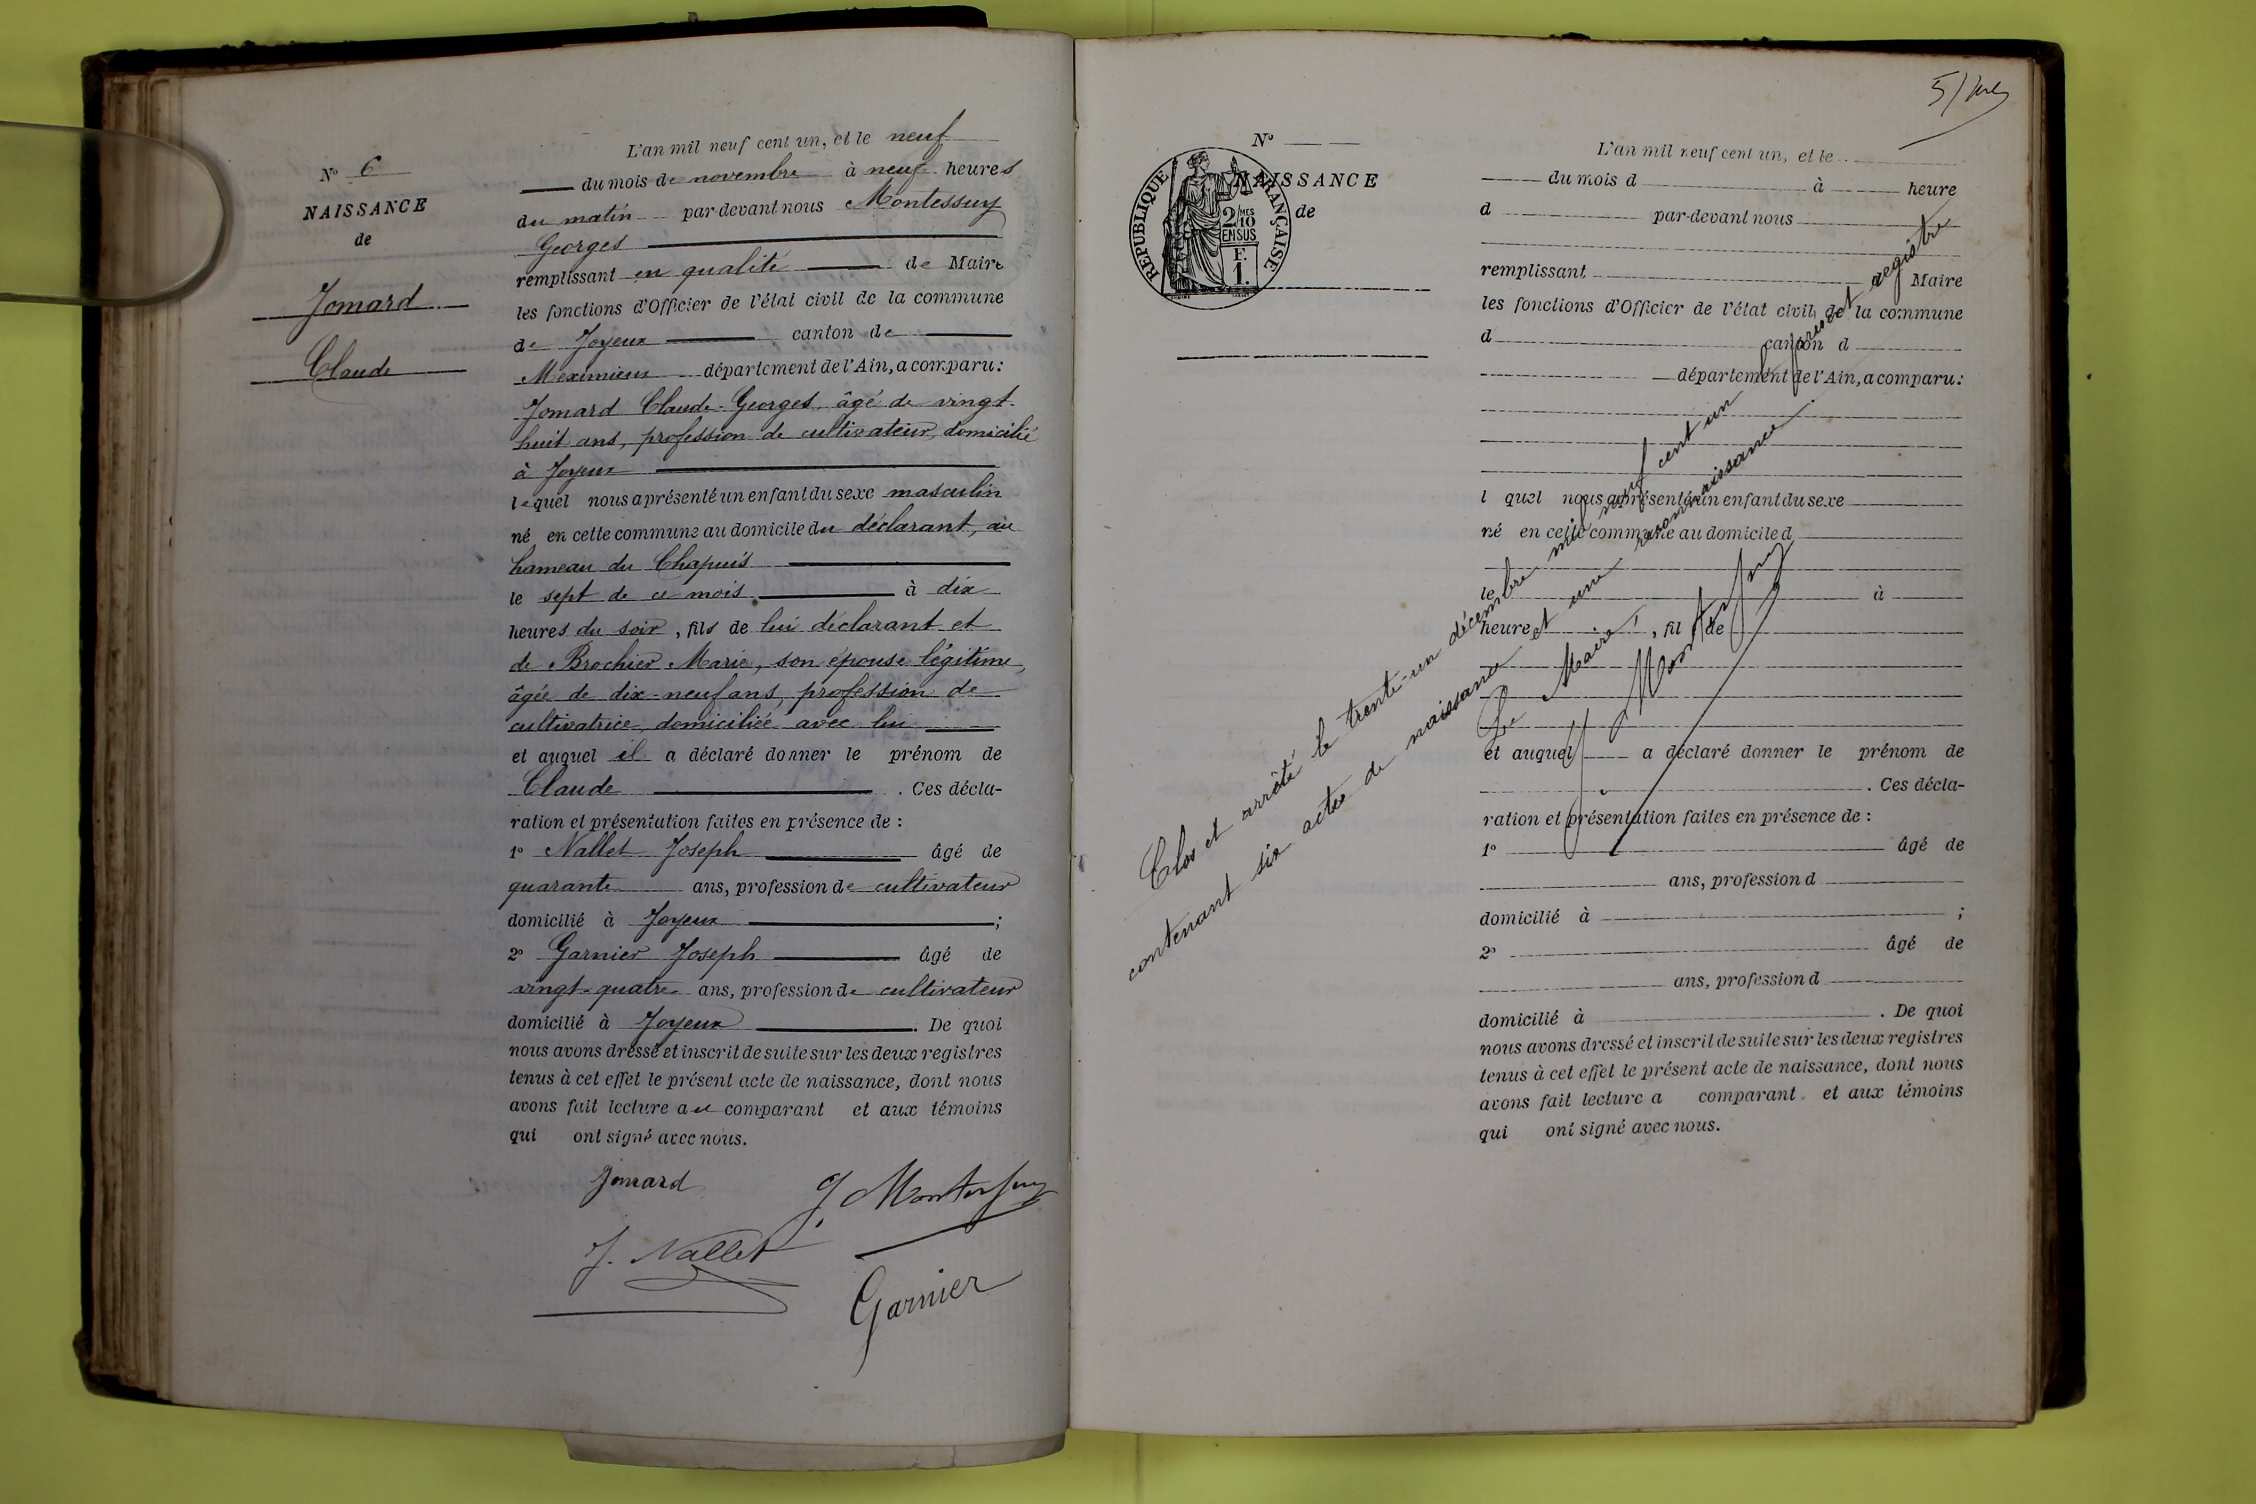 Nº 6
NAISSANCE
de
Jomard
Claude
L'an mil neuf cent un, et le neuf
du mois de novembre à neuf heures
du matin par-devant nous Montessuy
Georges
remplissant en qualité de Maire
les fonctions d'Officier de l'état civil de la commune
de Joyeux canton de
Meximieux département de l'Ain, a comparu:
Jomard Claude-Georges âgé de vingt-
huit ans, profession de cultivateur, domicilié
à Joyeux
lequel nous a présenté un enfant du sexe masculin
né en cette commune au domicile du déclarant, au
hameau du Chapuis
le sept de ce mois à dix
heures du soir, fils de lui déclarant et
de Brochier Marie, son épouse légitime,
âgée de dix-neuf ans, profession de
cultivatrice, domiciliée avec lui
et auquel il a déclaré donner le prénom de
Claude . Ces décla-
ration et présentation faites en présence de :
1º Nallet Joseph âgé de
quarante ans, profession de cultivateur
domicilié à Joyeux ;
2º Garnier Joseph âgé de
vingt-quatre ans, profession de cultivateur
domicilié à Joyeux . De quoi
nous avons dressé et inscrit de suite sur les deux registres
tenus à cet effet le présent acte de naissance, dont nous
avons fait lecture au comparant et aux témoins
qui ont signé avec nous.
Jomard
G. Montessuy
J. Nallet
Garnier
Nº
NAISSANCE
de
RÉPUBLIQUE FRANÇAISE
2/10 MES
EN SUS
F.
1.
L'an mil neuf cent un, et le
du mois d à heure
d par-devant nous
remplissant Maire
les fonctions d'Officier de l'état civil de la commune
d canton d
département de l'Ain, a comparu:
l quel nous a présenté un enfant du sexe
né en cette commune au domicile d
le à
heure , fil de
et auquel a déclaré donner le prénom de
. Ces décla-
ration et présentation faites en présence de :
1º âgé de
ans, profession d
domicilié à ;
2º âgé de
ans, profession d
domicilié à . De quoi
nous avons dressé et inscrit de suite sur les deux registres
tenus à cet effet le présent acte de naissance, dont nous
avons fait lecture a comparant et aux témoins
qui ont signé avec nous.
Clos et arrêté le trente-un décembre mil neuf cent un le présent registre
contenant six actes de naissance et une reconnaissance.
Le Maire,
G. Montessuy